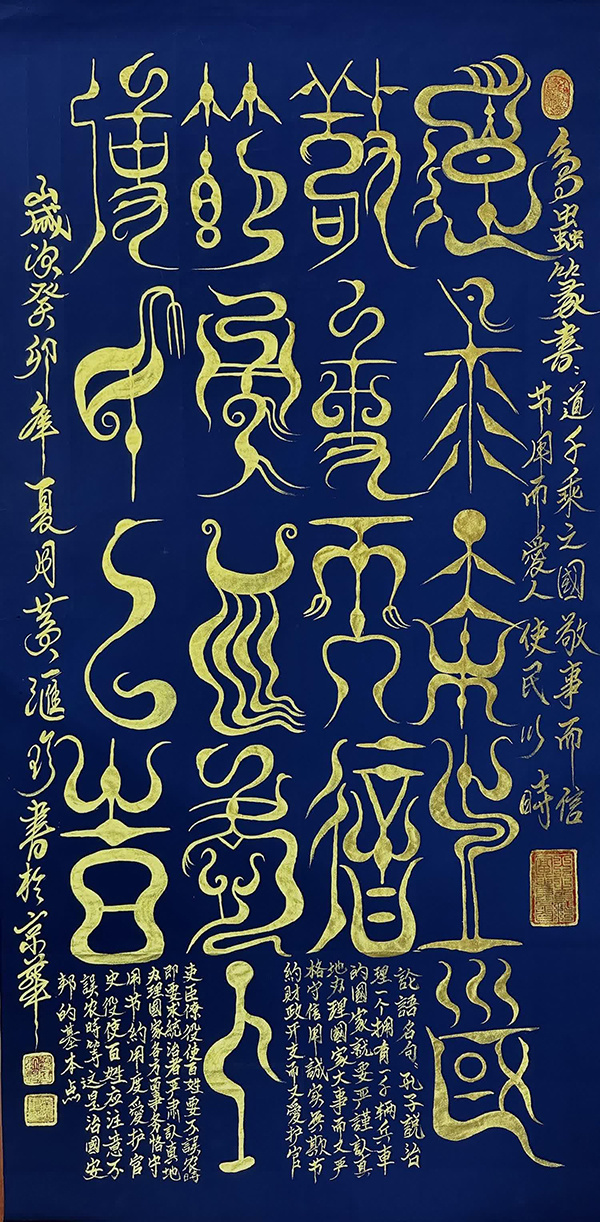 鸟蟲篆書：道千乘之國敬事而信
节用而愛人使民以時
道千乘之國
敬事而信
節用而愛人
使民以時
論語名句：孔子說治
理一个拥有一千辆兵車
的國家就要严謹認真
地办理國家大事而又严
格守信用誠实無欺节
約財政开支而又愛护官
吏臣僚役使百姓要不誤农時
即要求統治者严肃認真地
办理國家各方面事务恪守
用节約用度愛护官
史役使百姓应注意不
誤农時等这是治國安
邦的基本点
歲次癸卯年夏月黄滙珍書於京華